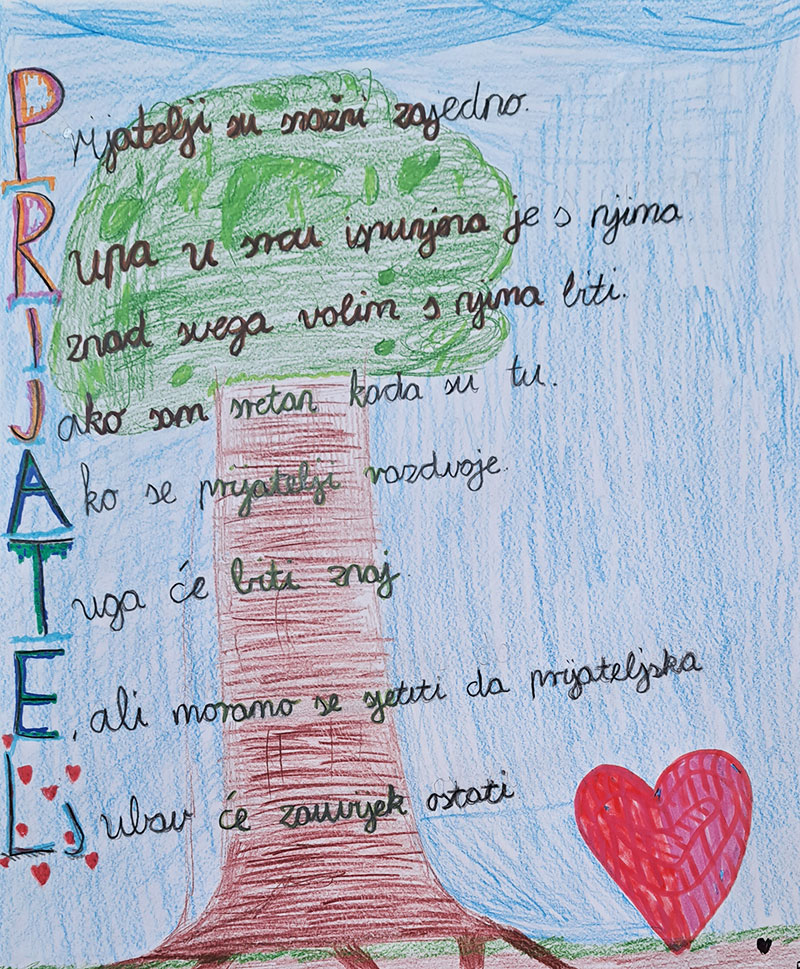 Prijatelji su snažni zajedno.
Rupa u srcu ispunjena je s njima
Iznad svega volim s njima biti.
Jako sam sretan kada su tu.
Ako se prijatelji razdvoje.
Tuga će biti znaj.
E, ali moramo se sjetiti da prijateljska
Ljubav će zauvijek ostati